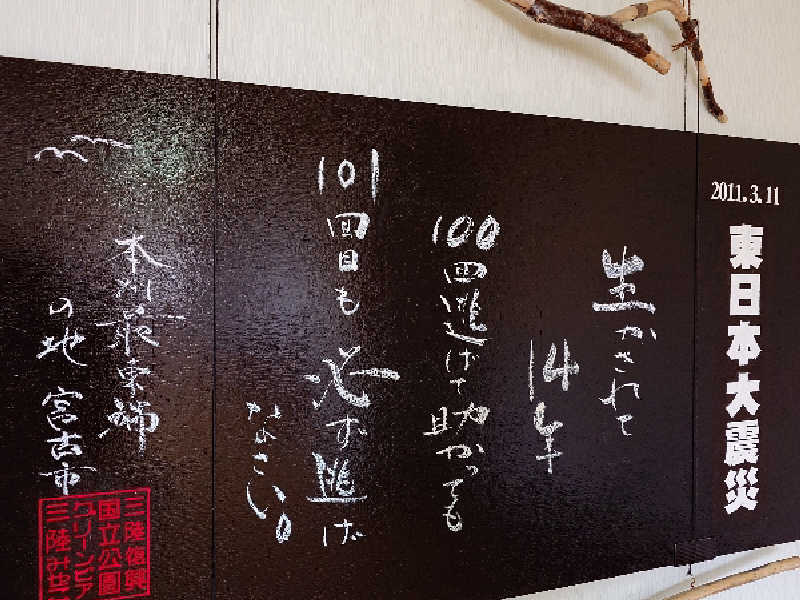 2011.3.11
東日本大震災
生かされて
14年
100回逃げて助かっても
101回目も必ず逃げ
なさい。
本州最東端
の地 宮古市
三陸復興
国立公園
グリーンピア
三陸みや